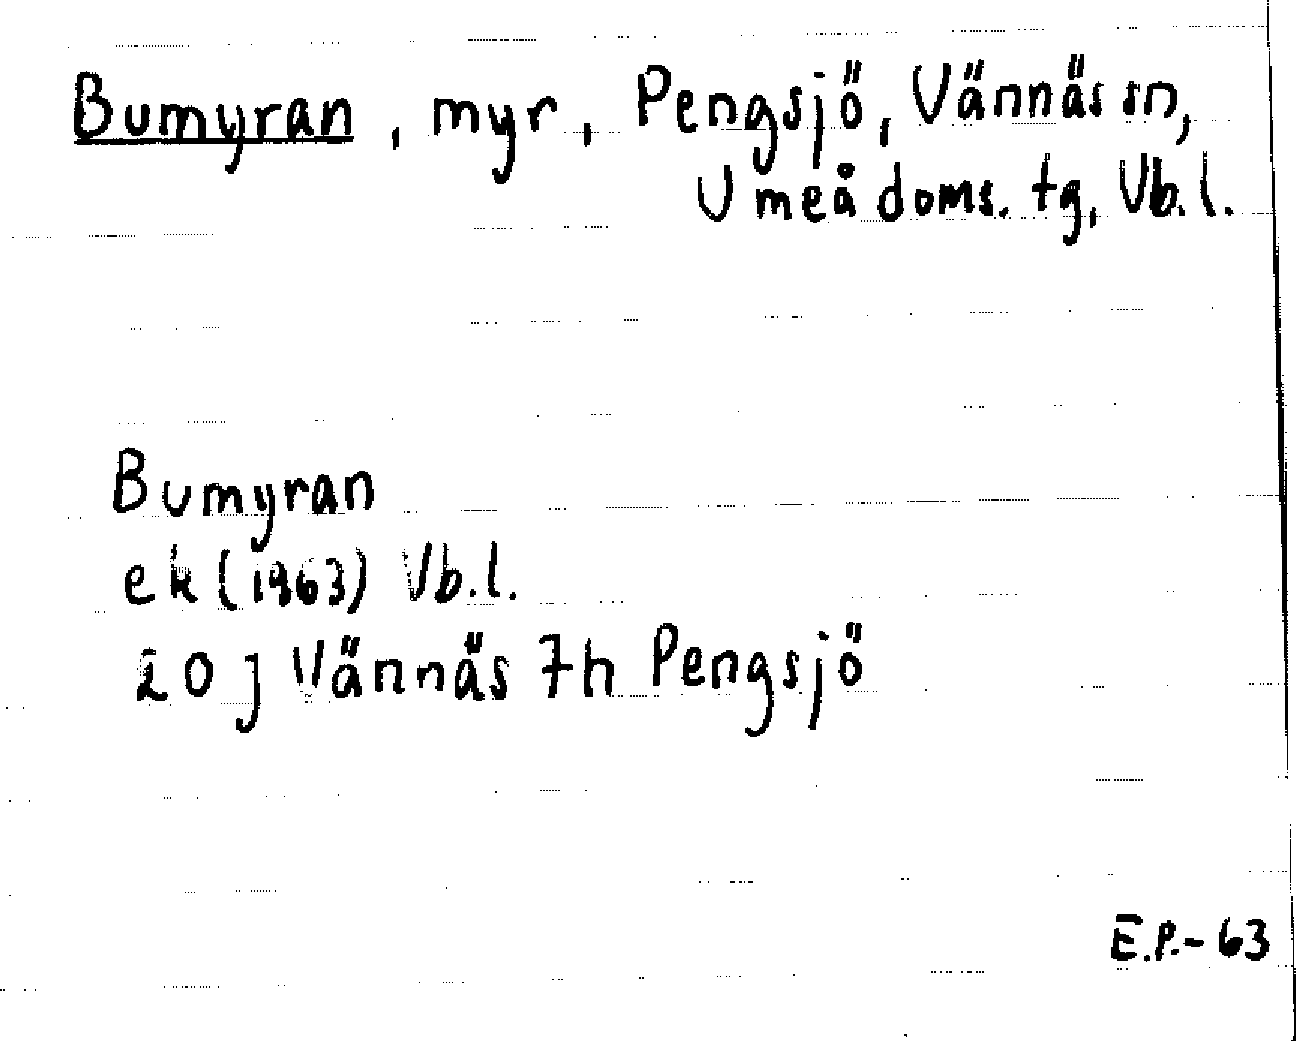 Bumyran, myr, Pengsjö, Vännäs sn,
Umeå doms. tg, Vb.l.
Bumyran
ek (1963) Vb.l.
20 J Vännäs 7h Pengsjö
E.P.-63